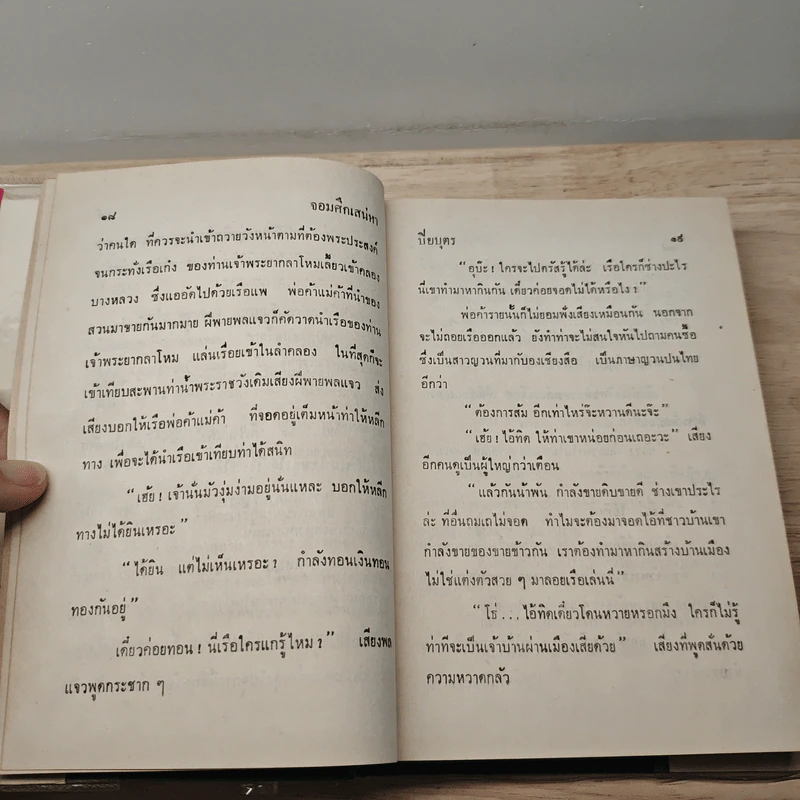 ๑๘
จอมศึกเสน่หา
ว่าคนใด ที่ควรจะนำเข้าถวายวังหน้าตามที่ต้องพระประสงค์
จนกระทั่งเรือเก๋ง ของท่านเจ้าพระยากลาโหมเลี้ยวเข้าคลอง
บางหลวง ซึ่งแออัดไปด้วยเรือแพ พ่อค้าแม่ค้าที่นำของ
สวนมาขายกันมากมาย ฝีพายพลแจวก็คัดวาดนำเรือของท่าน
เจ้าพระยากลาโหม แล่นเรื่อยเข้าในลำคลอง ในที่สุดก็จะ
เข้าเทียบสะพานท่าน้ำพระราชวังเดิมเสียงฝีพายพลแจว ส่ง
เสียงบอกให้เรือพ่อค้าแม่ค้า ที่จอดอยู่เต็มหน้าท่าให้หลีก
ทาง เพื่อจะได้นำเรือเข้าเทียบท่าได้สนิท
“เฮ้ย ! เจ้านั่นมัวงุ่มง่ามอยู่นั่นแหละ บอกให้หลีก
ทางไม่ได้ยินเหรอะ”
“ได้ยิน แต่ไม่เห็นเหรอะ? กำลังทอนเงินทอน
ทองกันอยู่”
เดี๋ยวค่อยทอน ! นี่เรือใครแกรู้ไหม ?” เสียงพล
แจวพูดกระชาก ๆ
ปิยบุตร
๑๙
“อุบ๊ะ ! ใครจะไปตรัสรู้ได้ล่ะ เรือใครก็ช่างปะไร
นี่เขาทำมาหากินกัน เดี๋ยวค่อยจอดไม่ได้หรือไง ?”
พ่อค้ารายนั้นก็ไม่ยอมฟังเสียงเหมือนกัน นอกจาก
จะไม่ถอยเรือออกแล้ว ยังทำท่าจะไม่สนใจหันไปถามคนซื้อ
ซึ่งเป็นสาวญวนที่มากับองเชียงสือ เป็นภาษาญวนปนไทย
อีกว่า
“ต้องการส้ม อีกเท่าไหร่จ๊ะหวานดีนะจ๊ะ”
“เฮ้ย ! ไอ้ทิด ให้ท่าเขาหน่อยก่อนเถอะวะ” เสียง
อีกคนดูเป็นผู้ใหญ่กว่าเตือน
“แล้วกันน้าพัน กำลังขายดิบขายดี ช่างเขาประไร
ล่ะ ที่อื่นถมเถไม่จอด ทำไมจะต้องมาจอดไอ้ที่ชาวบ้านเขา
กำลังขายของขายข้าวกัน เราต้องทำมาหากินสร้างบ้านเมือง
ไม่ใช่แต่งตัวสวย ๆ มาลอยเรือเล่นนี่”
“โธ่ . . . ไอ้ทิดเดี๋ยวโดนหวายหรอกมึง ใครก็ไม่รู้
ท่าที่จะเป็นเจ้าบ้านผ่านเมืองเสียด้วย” เสียงที่พูดสั่นด้วย
ความหวาดกลัว